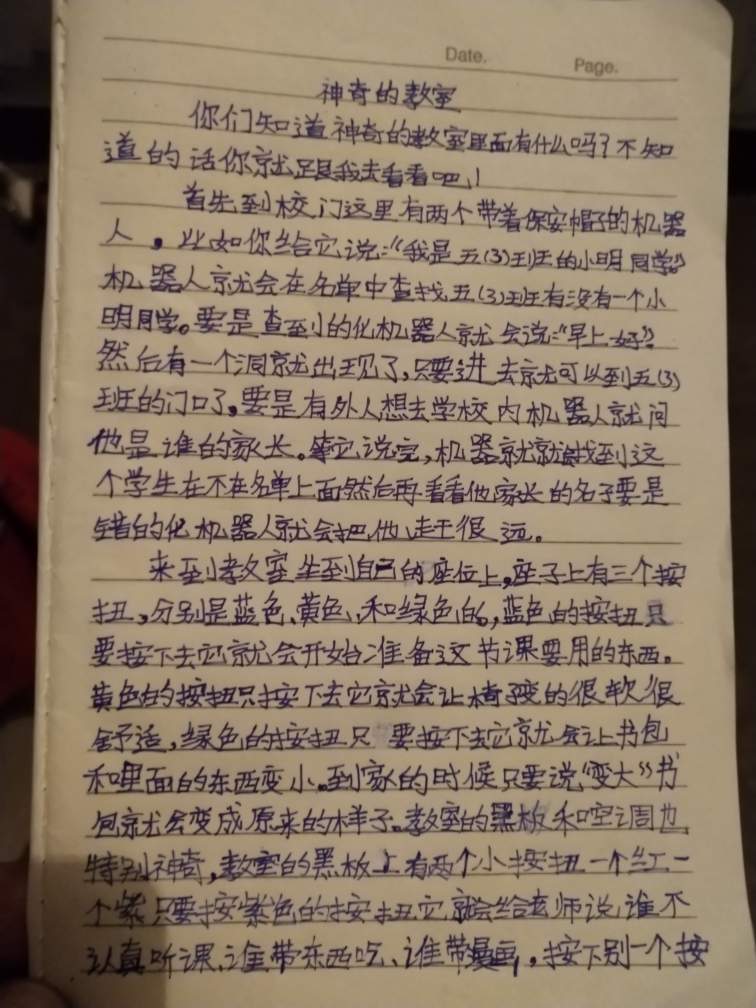 Date.
Page.
神奇的教室
你们知道神奇的教室里面有什么吗?不知
道的话你就跟我去看看吧!
首先到校门这里有两个带着保安帽子的机器
人。比如你给它说:“我是五(3)班的小明同学”
机器人就会在名单中查找五(3)班有没有一个小
明同学。要是查到的化机器人就会说:“早上好”
然后有一个洞就出现了,只要进去就可以到五(3)
班的门口了,要是有外人想去学校内机器人就问
他是谁的家长。等它说完,机器就就会找到这
个学生在不在名单上面然后再看看他家长的名子要是
错的化机器人就会把他赶于很远。
来到教室坐到自己的座位上,座子上有三个按
扭,分别是蓝色、黄色、和绿色的,蓝色的按扭只
要按下去它就会开始准备这节课要用的东西。
黄色的按扭只按下去它就会让椅子变的很软很
舒适,绿色的按扭只要按下去它就会让书包
和里面的东西变小。到家的时候只要说“变大”书
包就会变成原来的样子。教室的黑板和空调也
特别神奇,教室的黑板上有两个小按扭一个红一
个紫只要按紫色的按扭它就会给老师说谁不
认真听课、谁带东西吃、谁带漫画,按下别一个按